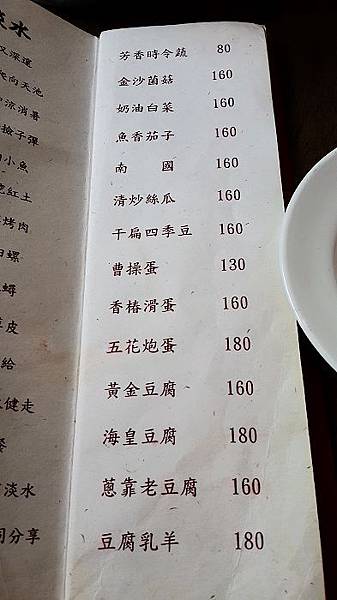 淡水
天池
涼消暑
撿子彈
小魚
紅土
烤肉
螺
蟳
皮
給
健走
淡水
同分享
芳香時令蔬 80
金沙菌菇 160
奶油白菜 160
魚香茄子 160
南 國 160
清炒絲瓜 160
干扁四季豆 160
曹操蛋 130
香椿滑蛋 160
五花炮蛋 180
黃金豆腐 160
海皇豆腐 180
蔥靠老豆腐 160
豆腐乳羊 180